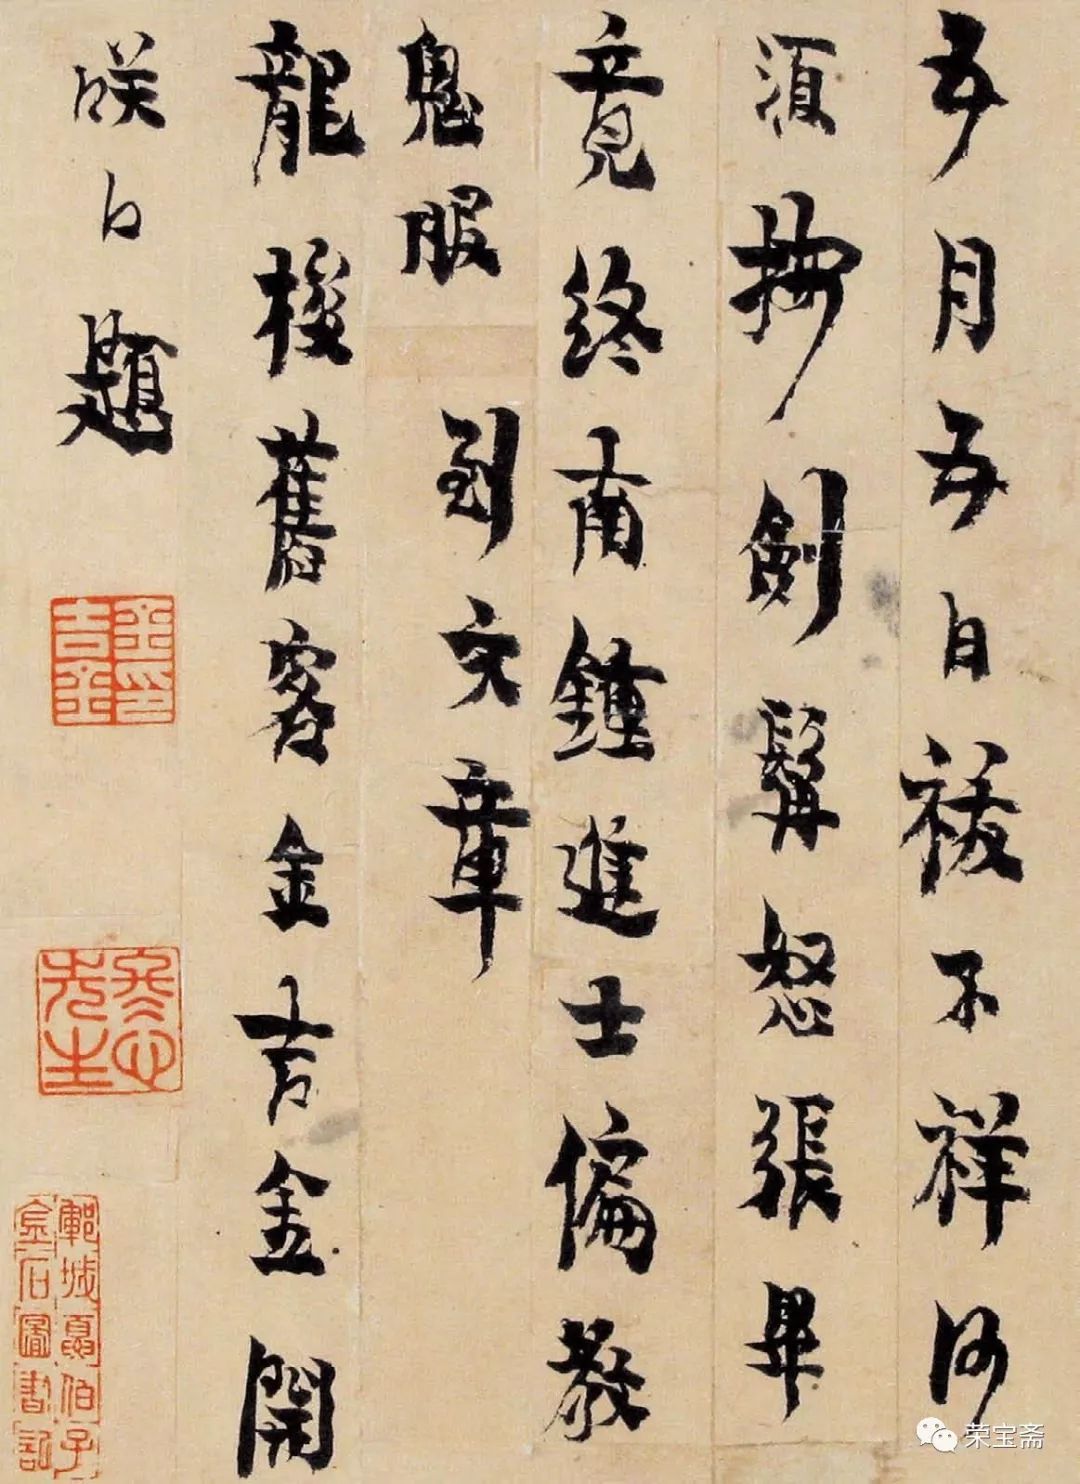 五月五日祓不祥何
須抽劍髯怒張畢
竟終南鍾進士偏教
鬼服
到文章
龍梭舊客金吉金開
口題
金吉金印
寒心先生
金石圖書記
荣宝斋